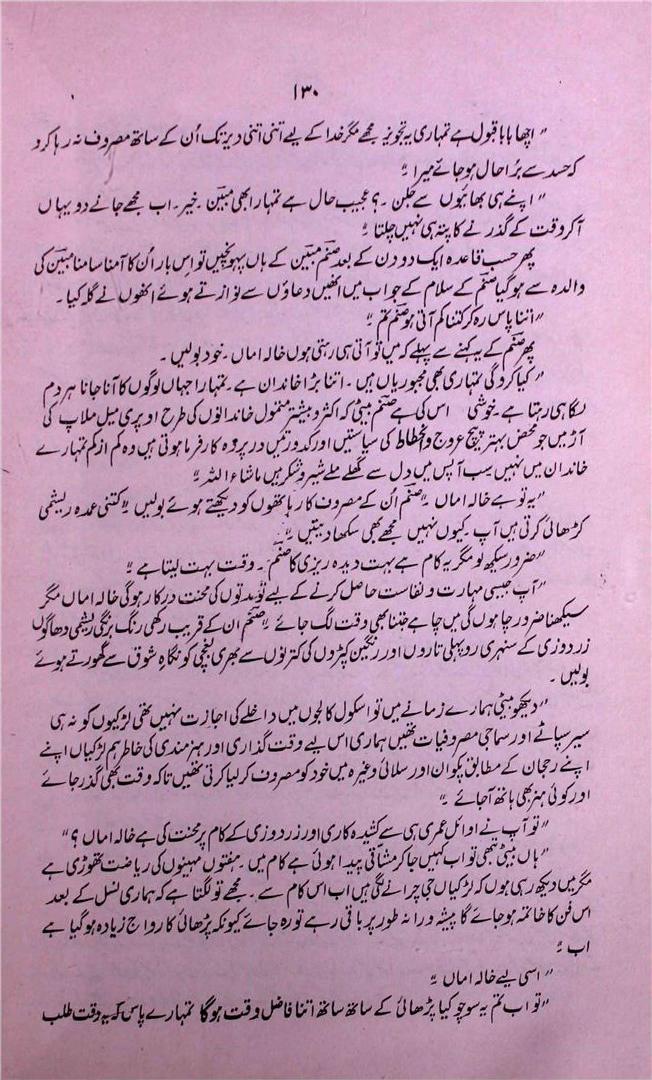 ۱۳۰
"اچھا بابا قبول ہے تمہاری یہ تجویز مجھے مگر خدا کے لیے اتنی اتنی دیر تک اُن کے ساتھ مصروف نہ رہا کرو
کہ حسد سے بُرا حال ہو جائے میرا"
"اپنے ہی بھائیوں سے جلن۔؟ عجیب حال ہے تمہارا بھی مبین۔ خیر۔ اب مجھے جانے دو یہاں
آ کر وقت کے گذرنے کا پتہ ہی نہیں چلتا"
پھر حسب قاعدہ ایک دو دن کے بعد صنم مبین کے ہاں پہونچیں تو اس بار اُن کا آمنا سامنا مبین کی
والدہ سے ہو گیا صنم کے سلام کے جواب میں انھیں دعاؤں سے نوازتے ہوئے انھوں نے گلہ کیا۔
"اتنا پاس رہ کر کتنا کم آتی ہو صنم تم"
پھر صنم کے یہ کہنے سے پہلے کہ میں تو آتی ہی رہتی ہوں خالہ اماں۔ خود بولیں۔
"کیا کرو گی تمہاری بھی مجبوریاں ہیں۔ اتنا بڑا خاندان ہے۔ تمہارا جہاں لوگوں کا آنا جانا ہر دم
لگا ہی رہتا ہے۔ خوشی اس کی ہے صنم بیٹی کہ اکثر و بیشتر متمول خاندانوں کی طرح اوپری میل ملاپ کی
آڑ میں جو محض بہتر پیچ عروج و انحطاط کی سیاستیں اور کدورتیں در پردہ کارفرما ہوتی ہیں وہ کم از کم تمہارے
خاندان میں نہیں سب آپس میں دل سے گھلے ملے شیر و شکر ہیں ماشاء اللہ"
"یہ تو ہے خالہ اماں" صنم اُن کے مصروف کار ہاتھوں کو دیکھتے ہوئے بولیں "کتنی عمدہ ریشمی
کڑھائی کرتی ہیں آپ۔ کیوں نہیں مجھے بھی سکھا دیتیں"
"ضرور سیکھ لو مگر یہ کام ہے بہت دیدہ ریزی کا صنم۔ وقت بہت لیتا ہے"
"آپ جیسی مہارت و نفاست حاصل کرنے کے لیے تو مدتوں کی محنت درکار ہو گی خالہ اماں مگر
سیکھنا ضرور چاہوں گی میں چاہے جتنا بھی وقت لگ جائے" صنم ان کے قریب رکھی رنگ برنگی ریشمی دھاگوں
زردوزی کے سنہری روپہلی تاروں اور رنگین کپڑوں کی کترنوں سے بھری بغچی کو نگاہِ شوق سے گھورتے ہوئے
بولیں۔
"دیکھو بیٹی ہمارے زمانے میں تو اسکول کالجوں میں داخلے کی اجازت نہیں تھی لڑکیوں کو نہ ہی
سیر سپاٹے اور سماجی مصروفیات تھیں ہماری اس لیے وقت گذاری اور ہنر مندی کی خاطر ہم لڑکیاں اپنے
اپنے رجحان کے مطابق پکوان اور سلائی وغیرہ میں خود کو مصروف کر لیا کرتی تھیں تاکہ وقت بھی گذر جائے
اور کوئی ہنر بھی ہاتھ آ جائے"
"تو آپ نے اوائل عمری ہی سے کشیدہ کاری اور زردوزی کے کام پر محنت کی ہے خالہ اماں؟"
"ہاں بیٹی تبھی تو اب کہیں جا کر مشاقی پیدا ہوئی ہے کام میں۔ ہفتوں مہینوں کی ریاضت تھوڑی ہے
مگر میں دیکھ رہی ہوں کہ لڑکیاں جی چرانے لگی ہیں اب اس کام سے۔ مجھے تو لگتا ہے کہ ہماری نسل کے بعد
اس فن کا خاتمہ ہو جائے گا پیشہ ورانہ طور پر باقی رہے تو رہ جائے کیونکہ پڑھائی کا رواج زیادہ ہو گیا ہے
اب"
"اسی لیے خالہ اماں"
"تو اب تم یہ سوچو کیا پڑھائی کے ساتھ ساتھ اتنا فاضل وقت ہو گا تمہارے پاس کہ یہ وقت طلب